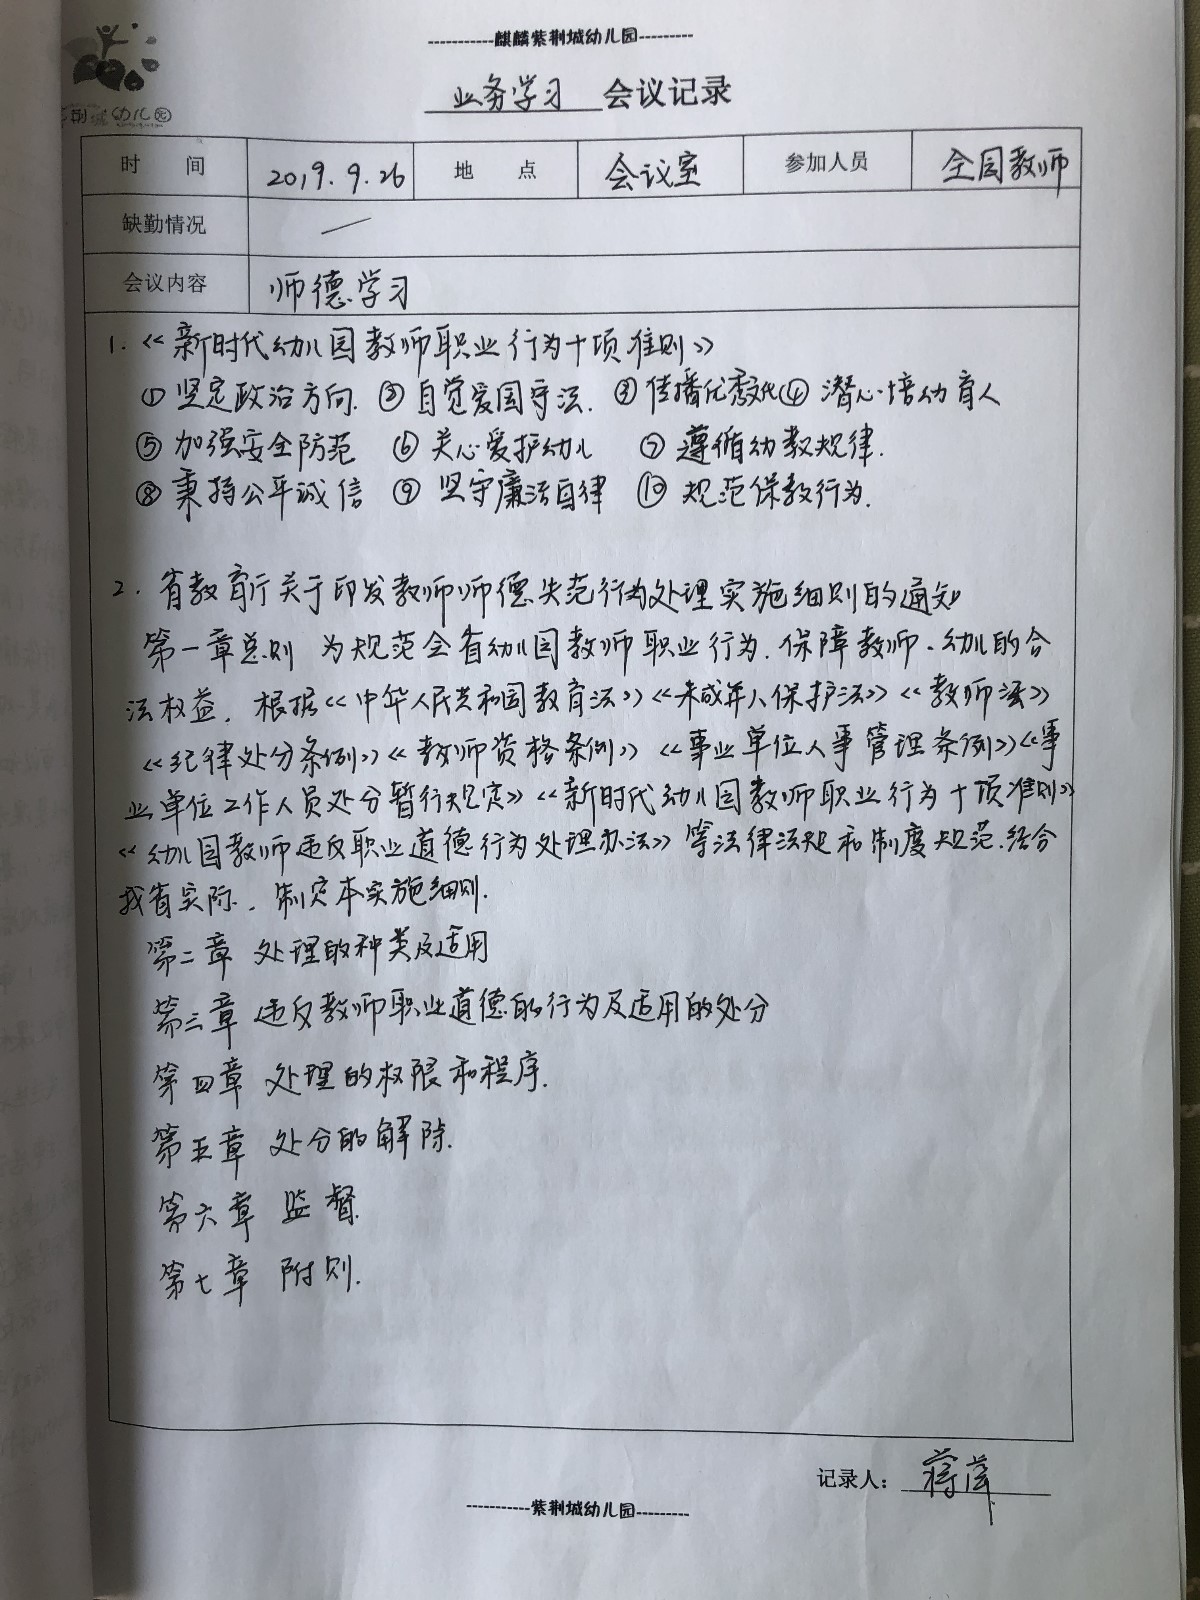 -----------麒麟紫荆城幼儿园---------
业务学习 会议记录
荆城幼儿园
时 间 2019.9.26 地 点 会议室 参加人员 全园教师
缺勤情况 —
会议内容 师德学习
1.《新时代幼儿园教师职业行为十项准则》
①坚定政治方向. ②自觉爱国守法. ③传播优秀文化 ④潜心培幼育人
⑤加强安全防范 ⑥关心爱护幼儿 ⑦遵循幼教规律.
⑧秉持公平诚信 ⑨坚守廉洁自律 ⑩规范保教行为.
2.省教育厅关于印发教师师德失范行为处理实施细则的通知
第一章总则 为规范全省幼儿园教师职业行为.保障教师、幼儿的合
法权益,根据《中华人民共和国教育法》《未成年人保护法》《教师法》
《纪律处分条例》《教师资格条例》《事业单位人事管理条例》《事
业单位工作人员处分暂行规定》《新时代幼儿园教师职业行为十项准则》
《幼儿园教师违反职业道德行为处理办法》等法律法规和制度规范.结合
我省实际,制定本实施细则.
第二章 处理的种类及适用
第三章 违反教师职业道德的行为及适用的处分
第四章 处理的权限和程序.
第五章 处分的解除.
第六章 监督.
第七章 附则.
记录人: 蒋萍
-----------紫荆城幼儿园---------